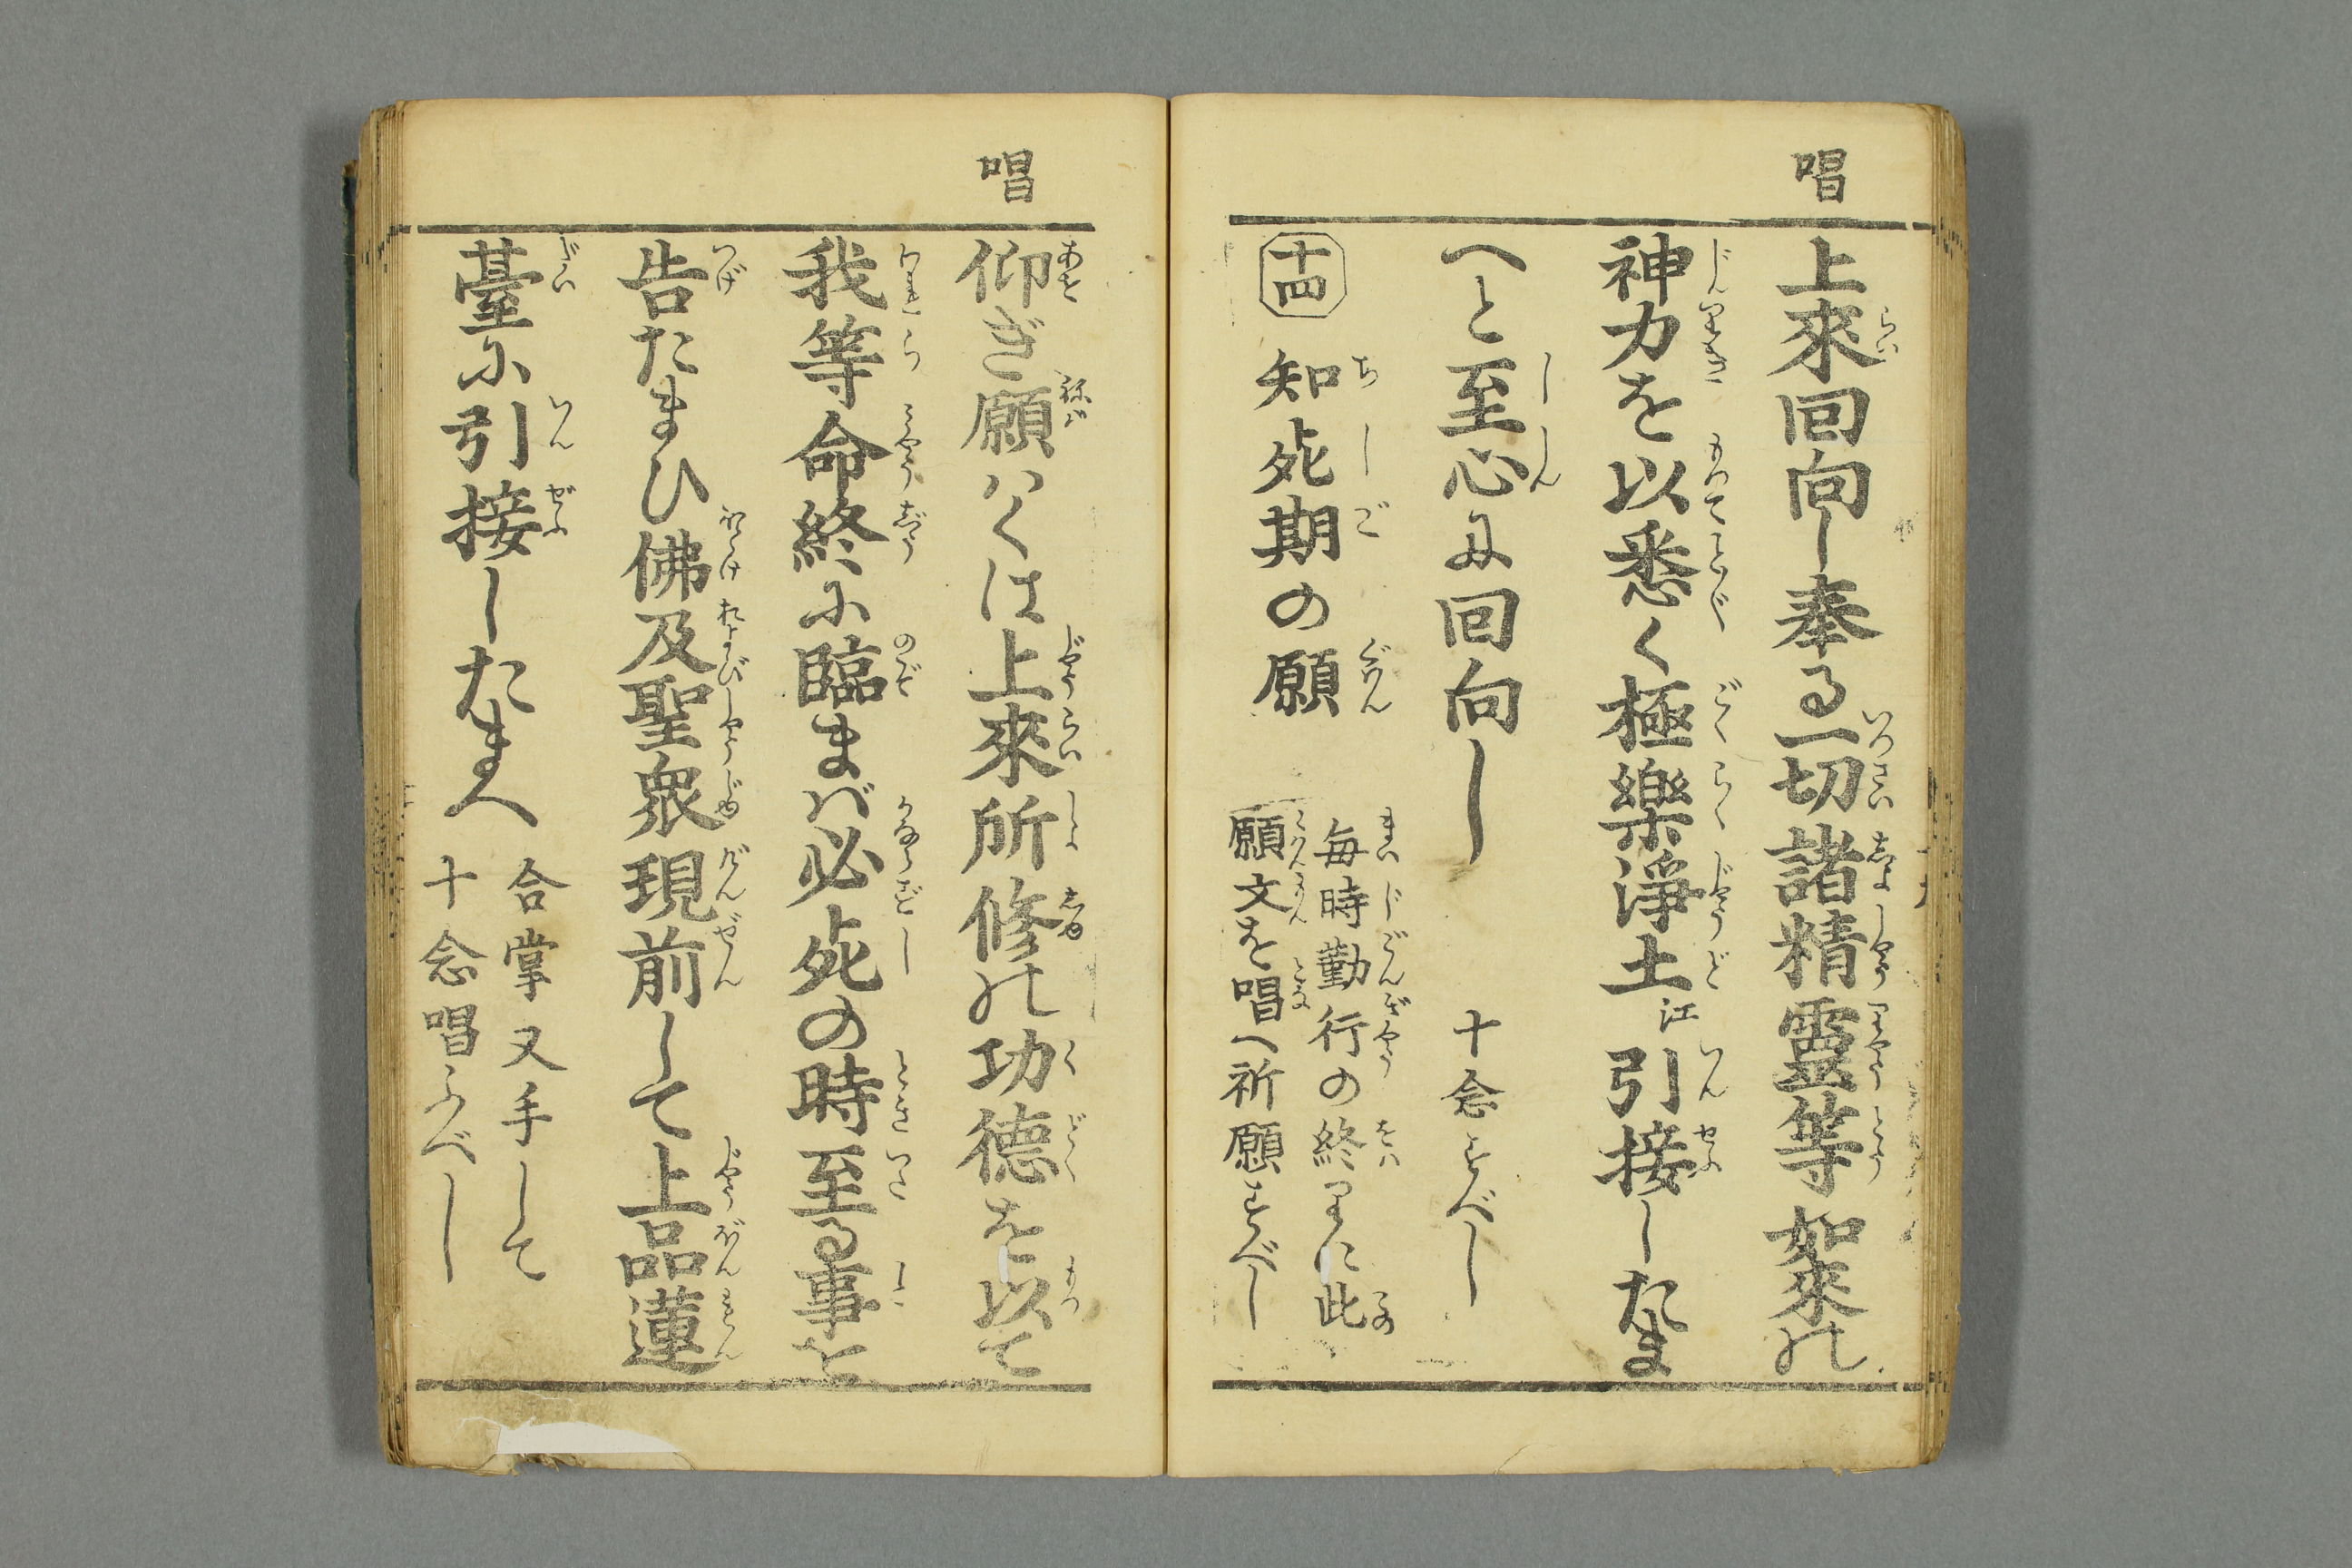 唱
上來回向し奉る一切諸精靈等如來の
神力を以悉く極樂淨土江引接したま
へと至心に回向し 十念すべし
十四 知死期の願 毎時勤行の終りに此
願文を唱へ祈願すべし
唱
仰ぎ願ハくは上來所修の功德を以て
我等命終に臨まば必死の時至る事を
告たまひ佛及聖衆現前して上品蓮
臺に引接したまへ 合掌叉手して
十念唱ふべし